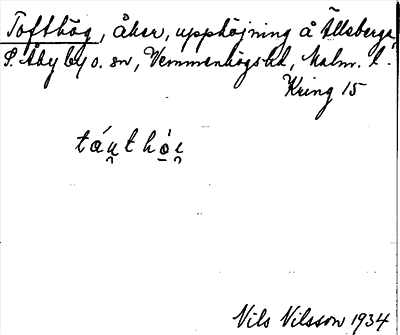 Tofthög, åker, upphöjning å Ällsberga,
S. Åby by o. sn, Vemmenhögs hd, Malm. l.
Kring 15
tá u̯ t h ó̤ i̯
Nils Nilsson 1934